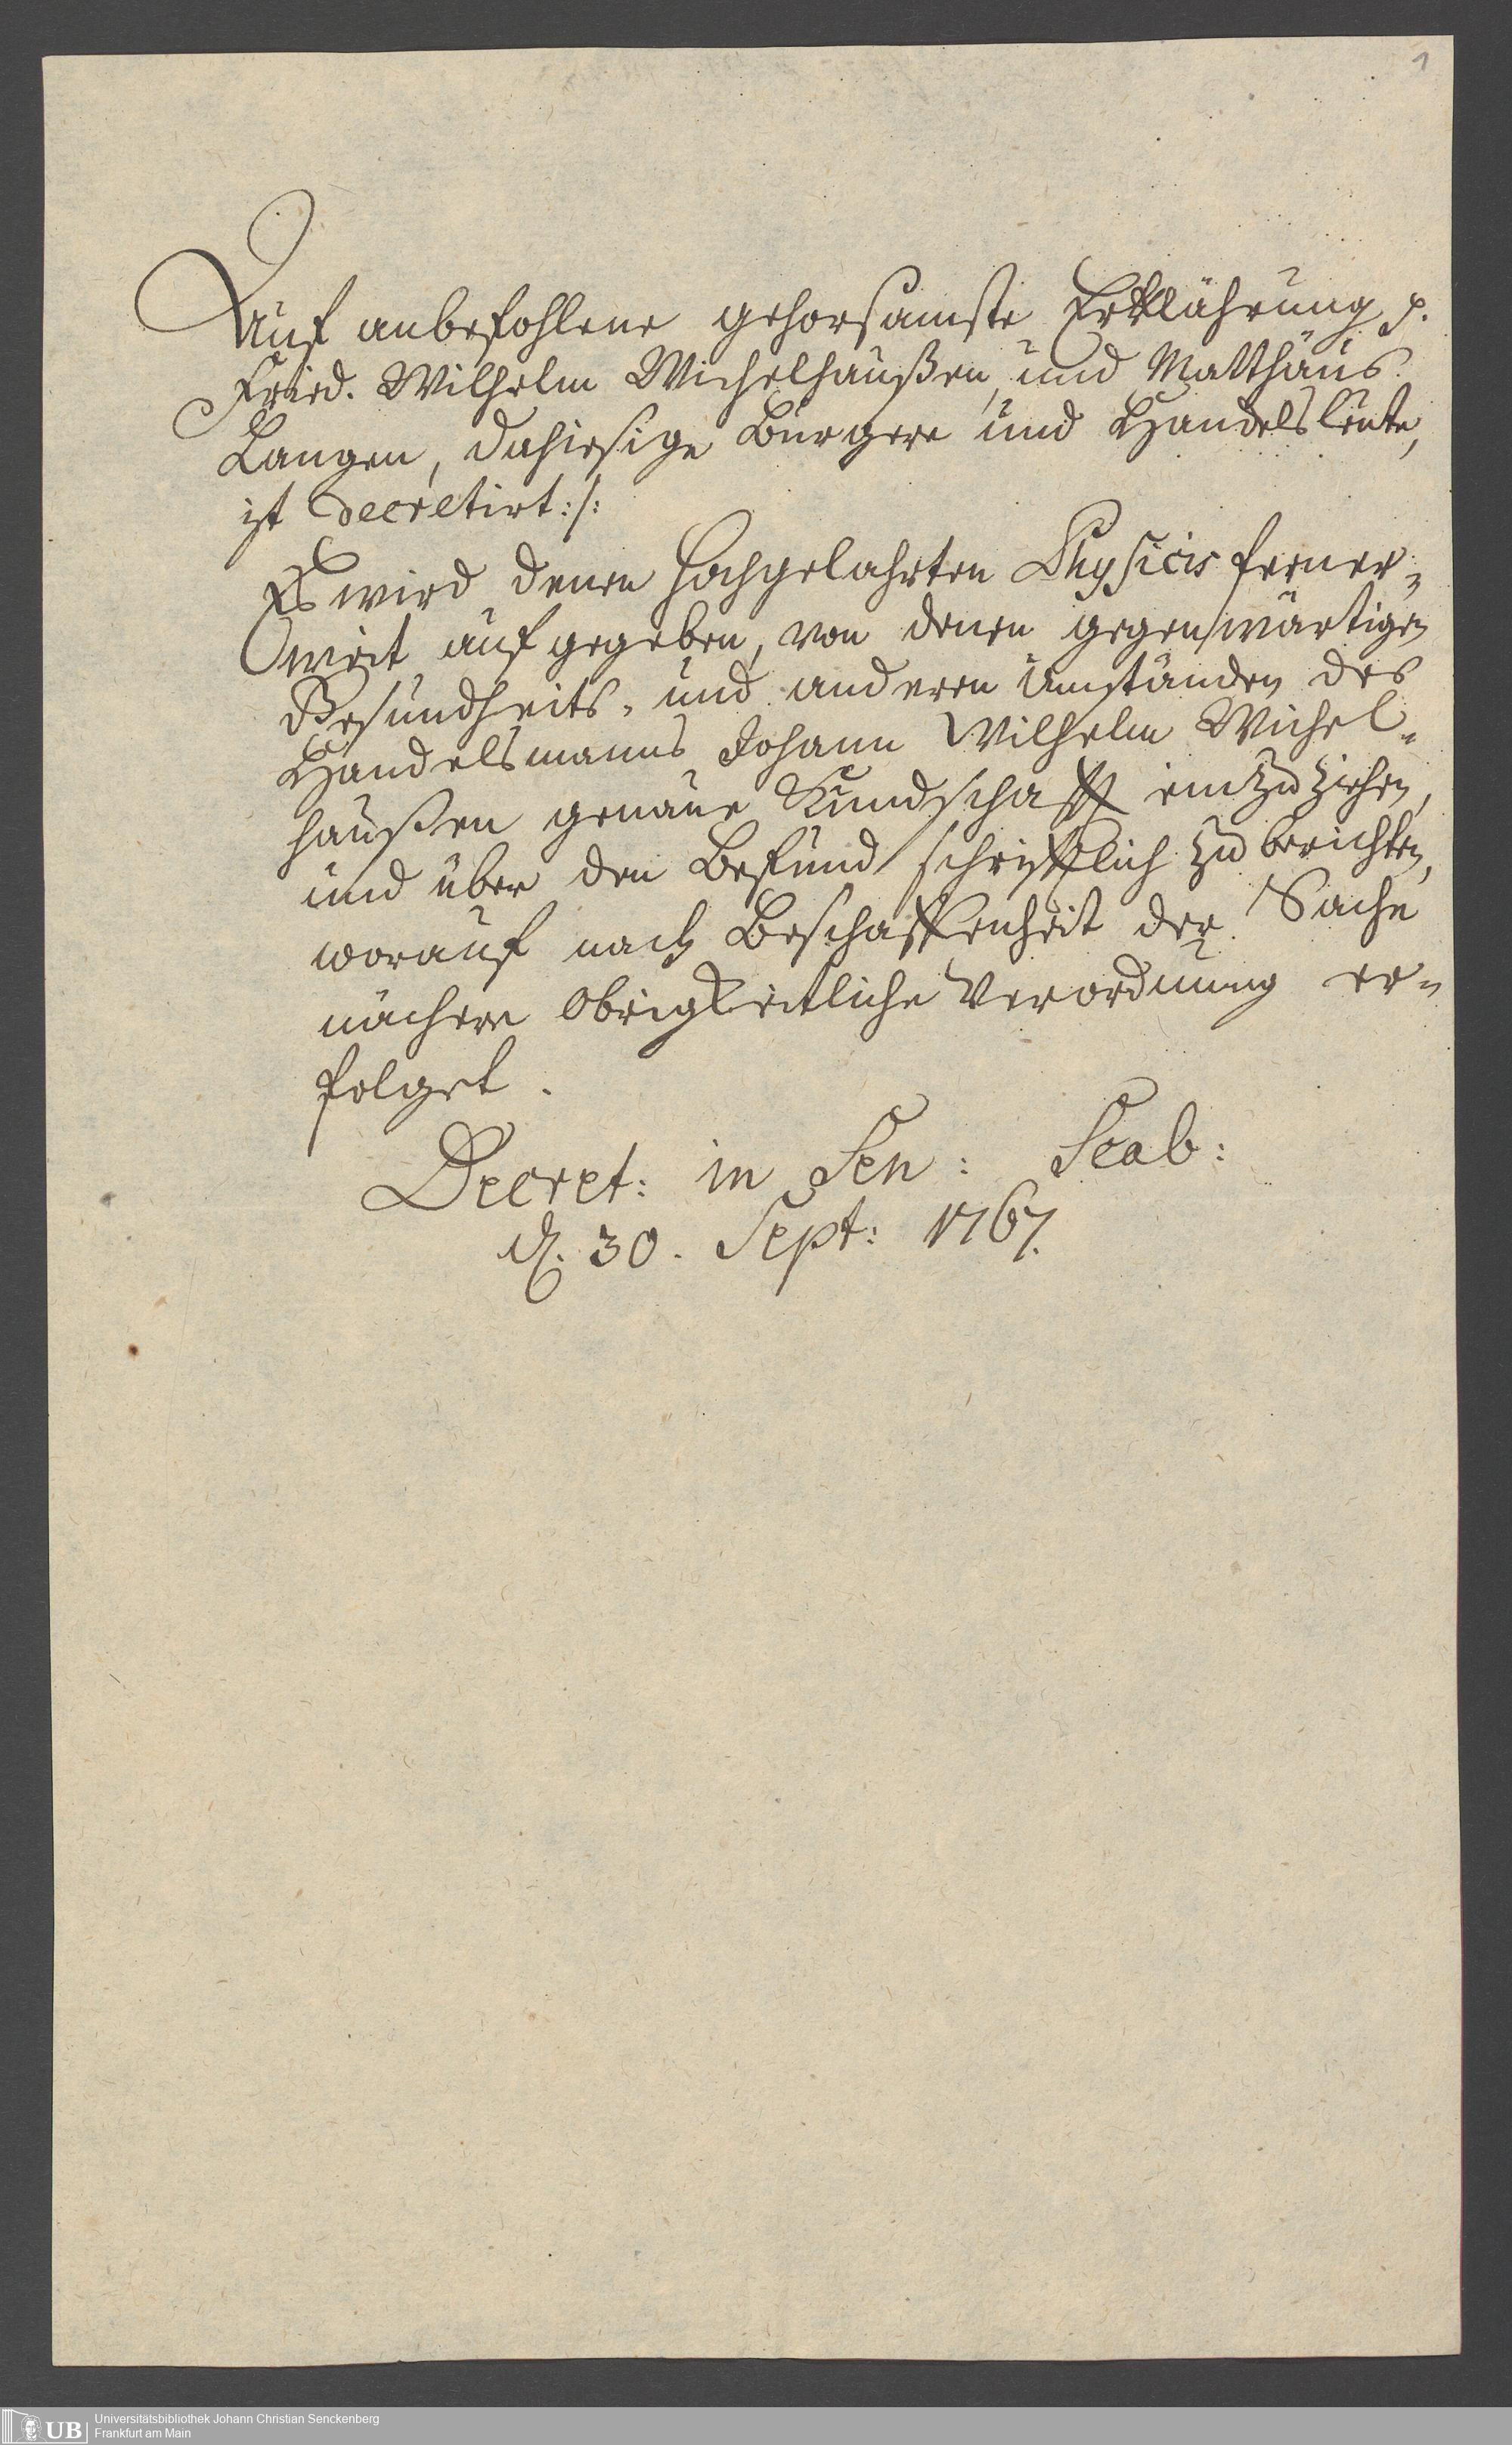 1
Auf anbefohlene gehorsamste Erklährung p.
Fried. Wilhelm Wichelhaußen, und Matthäus
Langen, dahiesige Bürgere und Handelsleute,
ist decretirt:/:
Es wird denen Hochgelahrten Physicis ferner-
weit aufgegeben, von denen gegenwärtigen
Gesundheits- und anderen Umständen des
Handelsmanns Johann Wilhelm Wichel-
haußen genaue Kundschafft einzuziehen,
und über den Befund schrifftlich zu berichten,
worauf nach Beschaffenheit der Sache
nähere Obrigkeitliche Verordnung er-
folget.
Decret: in Sen: Scab:
d. 30. Sept: 1767.
UB
Universitätsbibliothek Johann Christian Senckenberg
Frankfurt am Main